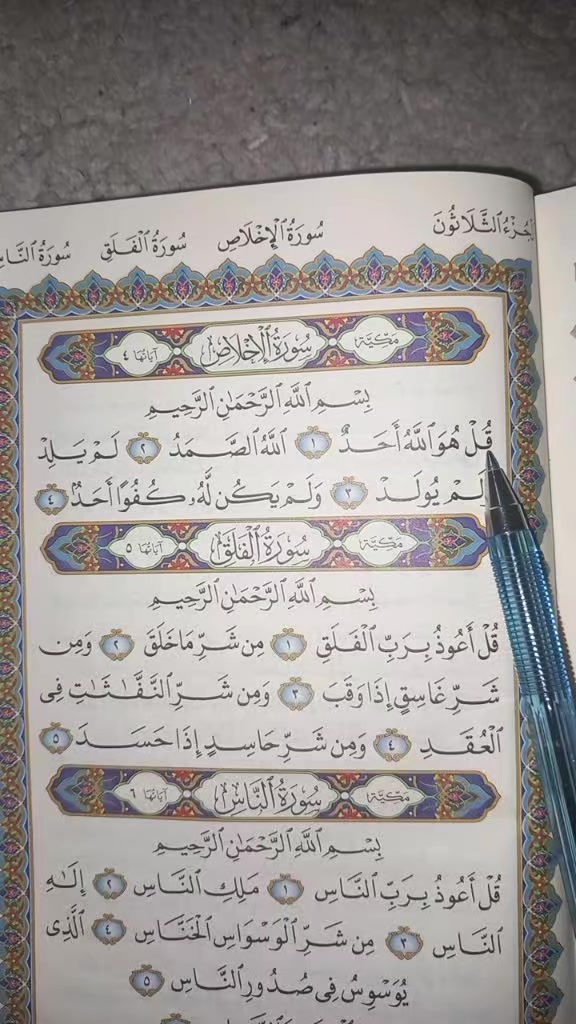 الجُزْءُ الثَّلَاثُونَ سُورَةُ الْإِخْلَاصِ سُورَةُ الْفَلَقِ سُورَةُ النَّاسِ
مَكِّيَّة سُورَةُ الْإِخْلَاصِ آيَاتُهَا ٤
بِسْمِ اللَّهِ الرَّحْمَٰنِ الرَّحِيمِ
قُلْ هُوَ اللَّهُ أَحَدٌ ١ اللَّهُ الصَّمَدُ ٢ لَمْ يَلِدْ
وَلَمْ يُولَدْ ٣ وَلَمْ يَكُن لَّهُۥ كُفُوًا أَحَدٌ ٤
مَكِّيَّة سُورَةُ الْفَلَقِ آيَاتُهَا ٥
بِسْمِ اللَّهِ الرَّحْمَٰنِ الرَّحِيمِ
قُلْ أَعُوذُ بِرَبِّ الْفَلَقِ ١ مِن شَرِّ مَا خَلَقَ ٢ وَمِن
شَرِّ غَاسِقٍ إِذَا وَقَبَ ٣ وَمِن شَرِّ النَّفَّٰثَٰتِ فِى
الْعُقَدِ ٤ وَمِن شَرِّ حَاسِدٍ إِذَا حَسَدَ ٥
مَكِّيَّة سُورَةُ النَّاسِ آيَاتُهَا ٦
بِسْمِ اللَّهِ الرَّحْمَٰنِ الرَّحِيمِ
قُلْ أَعُوذُ بِرَبِّ النَّاسِ ١ مَلِكِ النَّاسِ ٢ إِلَٰهِ
النَّاسِ ٣ مِن شَرِّ الْوَسْوَاسِ الْخَنَّاسِ ٤ الَّذِى
يُوَسْوِسُ فِى صُدُورِ النَّاسِ ٥